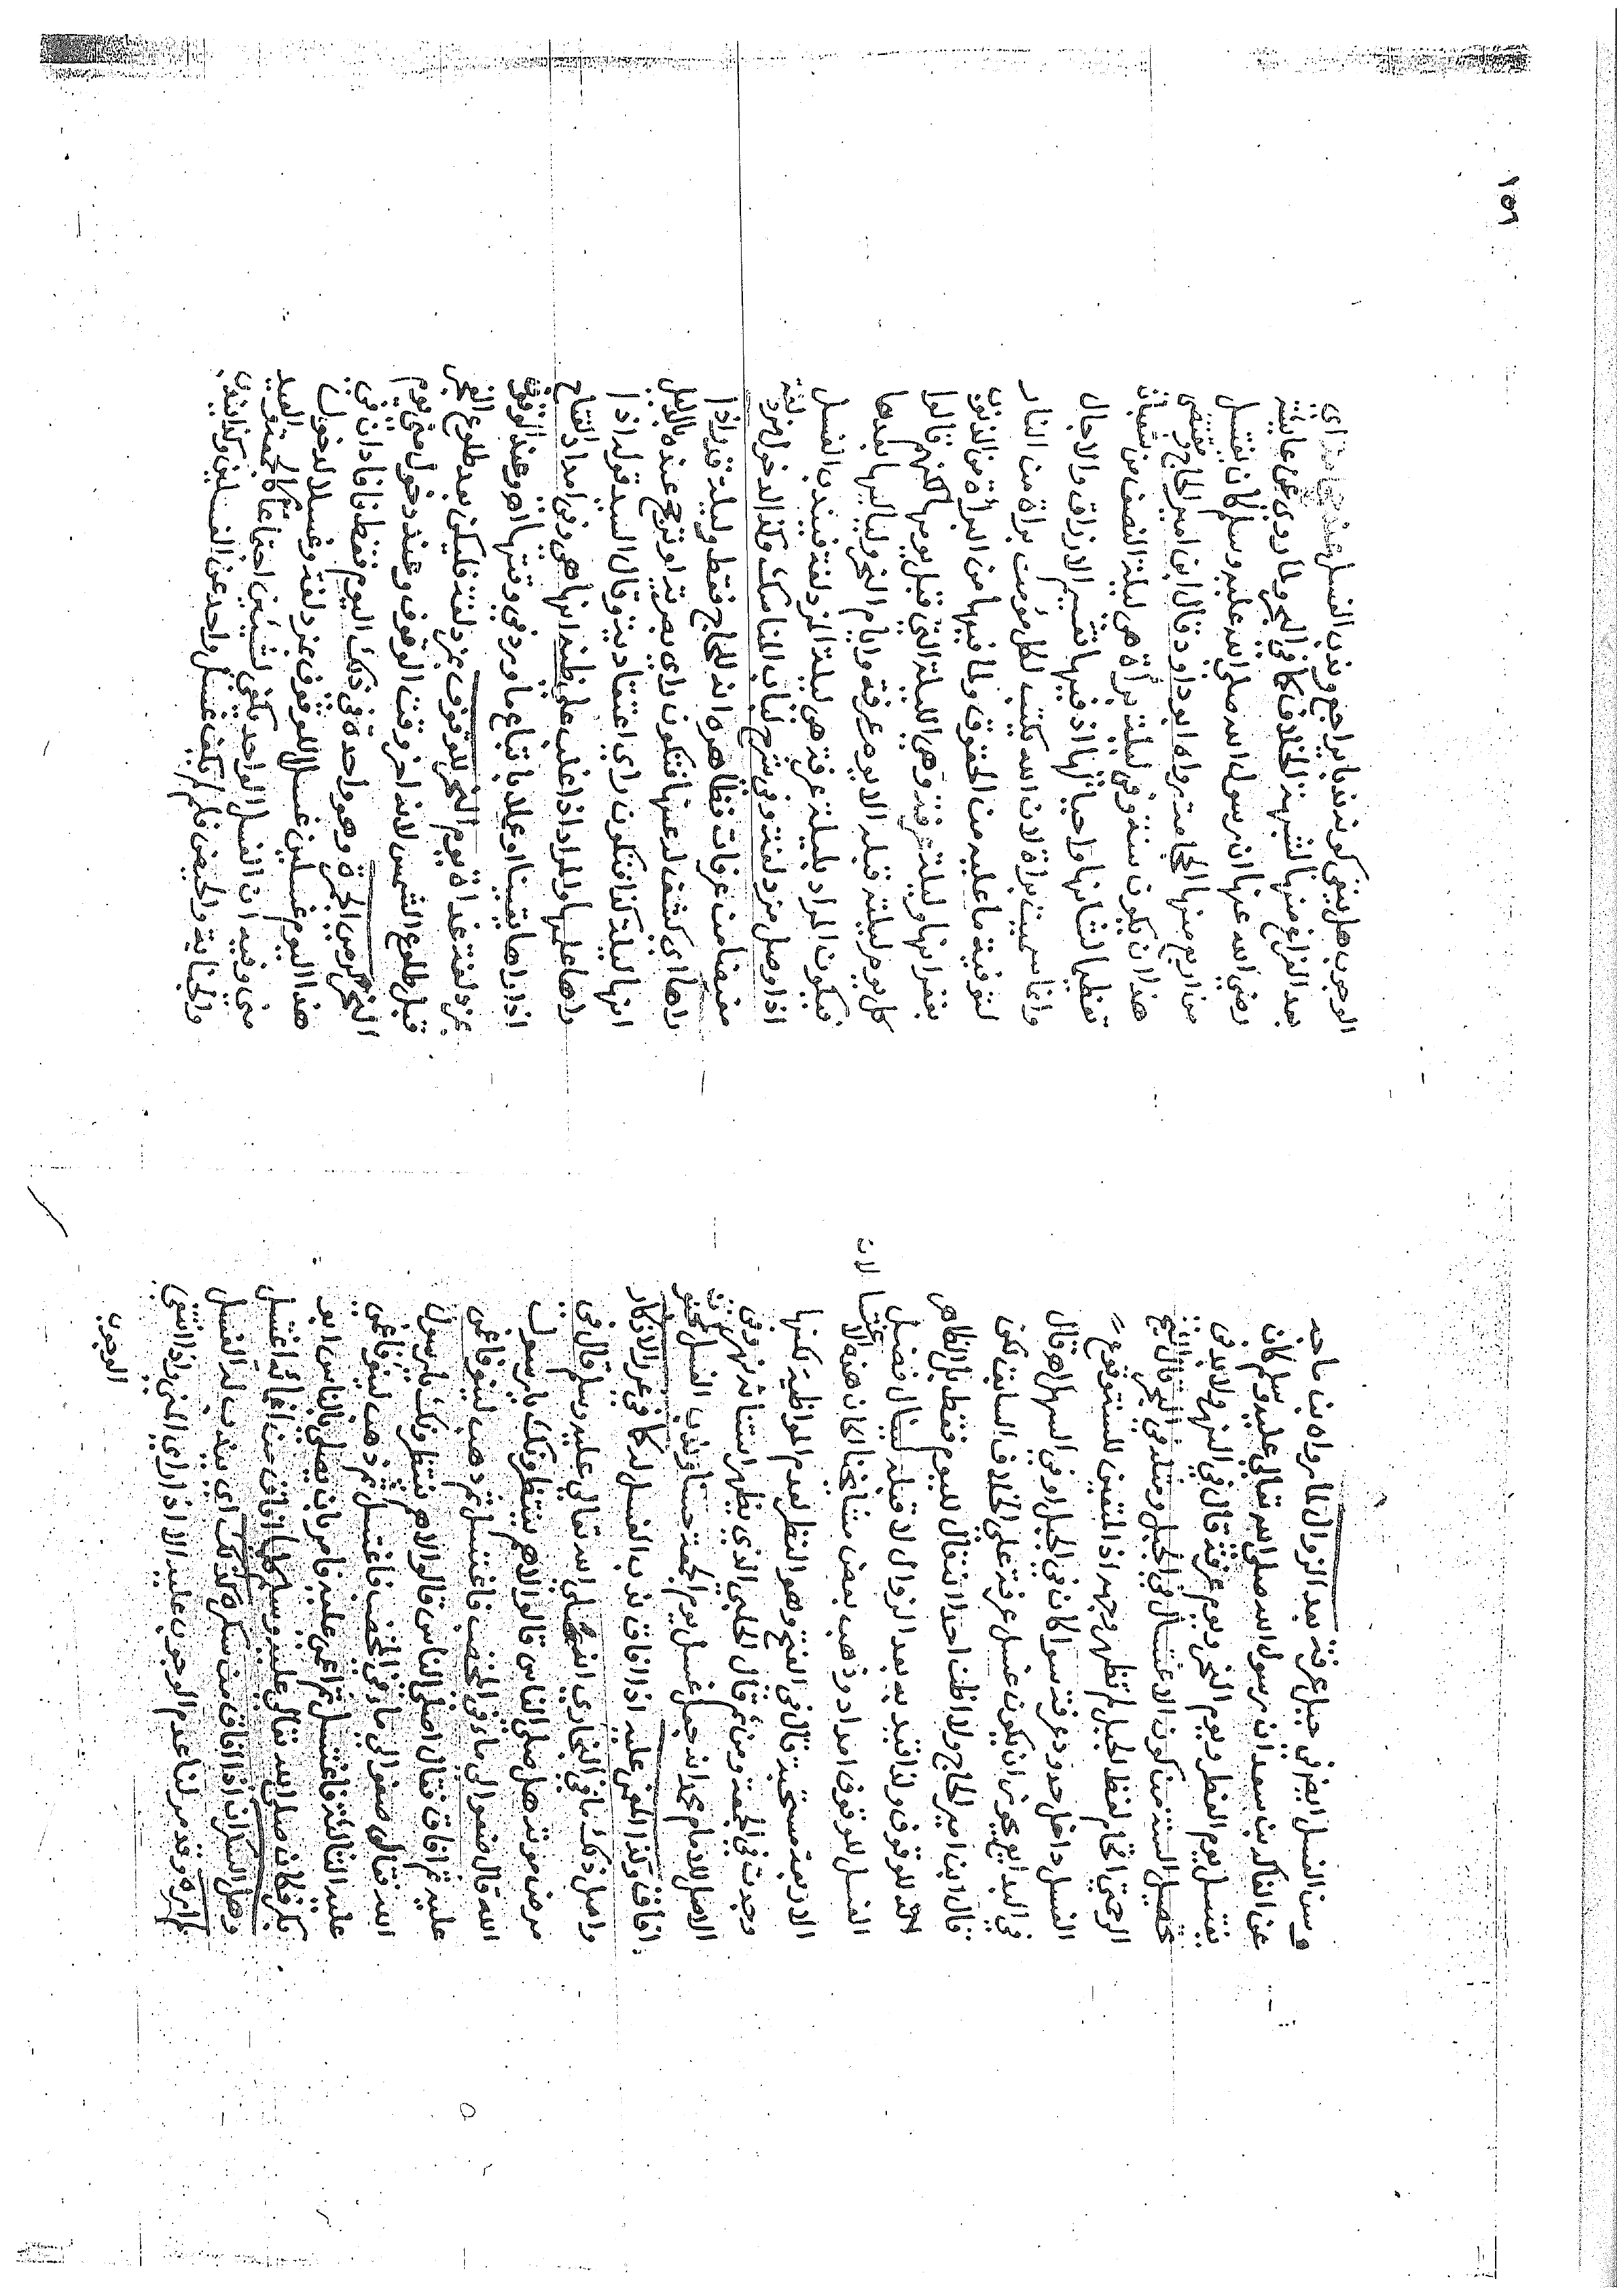 وسن الغسل ايضا في جبل عرفة بعد الزوال لما رواه ابن ماجه
عن الفاكه بن سعد ان رسول الله صلى الله تعالى عليه وسلم كان
يغتسل يوم الفطر ويوم النحر ويوم عرفة قال في النهر ولا بد في
تحصيل السنة من كون الاغتسال في الجبل ومثله في البحر قال الشيخ
الرحمتي اقحام لفظ الجبل لم تظهر وجهه اذ المتعين للسنة وقوع
الغسل داخل حدود عرفة سوا كان في الجبل او في السهل اهـ وقال
في البدايع يجوز ان يكون غسل عرفة على الخلاف السابق لكن
قال ابن امير الحاج ولا اظن احدا انه قال لليوم فقط بل الظاهر
انه للوقوف ولذا قيد به بعد الزوال لا قبله لينال فضل
الغسل للوقوف امداد وذهب بعض مشايخنا الى ان هذه الاغتسالات
الاربعة مستحبة قال في الفتح وهو النظر لعدم المواظبة لكنها
وجدت في الجمعة ومن ثم قال الحلبي الذي يظهر استنانه نهر وفي
الاصل للامام محمد انه جعل غسل يوم الجمعة حسنا وندب الغسل لمجنون
افاق وكذا المغمى عليه اذا افاق ندب الغسل له كا في غرر الاذكار
واصل ذلك ما في البخاري انه صلى الله تعالى عليه وسلم قال في
مرض موته هل صلى الناس قالوا لا هم ينتظرونك يا رسول
الله قال ضعوا لي ماء في المخضب فاغتسل ثم ذهب لينوء فاغمى
عليه ثم افاق فقال اصلى الناس قالوا لا هم ينتظرونك يا رسول
الله فقال ضعوا لي ماء في المخضب فاغتسل ثم ذهب لينوء فاغمى
عليه الثالثة فاغتسل ثم اغمى عليه فامر بان يصلى بالناس ابو
بكر فكان صلى الله تعالى عليه وسلم كلما افاق من اغمائه اغتسل
وهل السكران اذا افاق من سكره كذلك اي يندب له الغسل
لم اره وقد مر لنا عدم الوجوب عليه الا اذا راى المني واذا انتفى
الوجوب
١٥٦
الوجوب هل ينتفي كونه ندبا يراجع وندب الغسل عند حجامة اى
بعد الفراغ منها لشبهة الخلاف كا في البحر ولما روى عن عايشة
رضي الله عنها ان رسول الله صلى الله عليه وسلم كان يغتسل
من اربع منها الحجامة رواه ابو داود وقال ابن امير الحاج مقتضى
هذا ان يكون سنة وفي ليلة براءة هى ليلة النصف من شعبان
تعظيما لشانها واحيائها اذ فيها تقسيم الارزاق والاجال
وانما سميت براة لان الله يكتب لكل مؤمن براة من النار
لتوفية ما عليه من الحقوق ولما فيها من البراة من الذنوب
بغفرانها وليلة عرفة وهي الليلة التي قبل يومها لكنهم قالوا
كل يوم ليلته قبله الا يوم عرفة وايام النحر ولياليها بعدها
فيكون المراد بليلة عرفة هى ليلة المزدلفة فيندب الغسل
اذا وصل مزدلفة وفي شرح لباب المناسك وكذا لدخول مزدلفة
مفيضا من عرفات فظاهره انه للحاج فقط وليلة قدر اذا
راها اى كشف له عنها فتكون راى بصرية او ترجح عنده بالدليل
انها ليلة كذا فتكون راى اعتقادية وقال السيد قوله اذا
راها علمها والمراد اذا غلب على ظنه انها هى وفي امداد الفتاح
اذا راها يقينا او علما باتباع ما ورد في وقتها اهـ وعند الوقوف
بمزدلفة غداة يوم النحر للوقوف بمزدلفة فليكن بعد طلوع الفجر
قبل طلوع الشمس لانه اخر وقت الوقوف وعند دخول منى يوم
النحر لرمي الجمرة وهو واحدة في ذلك اليوم فقط فافاد ان في
هذا اليوم غسلين غسلا للوقوف بمزدلفة وغسلا لدخول
منى وفيه ان الغسل الواحد يكفي لشيئين اجتمعا كالجمعة والعيد
والجنابة والحيض فلم لم يكف غسل واحد عن الغسلين وكذا يندب